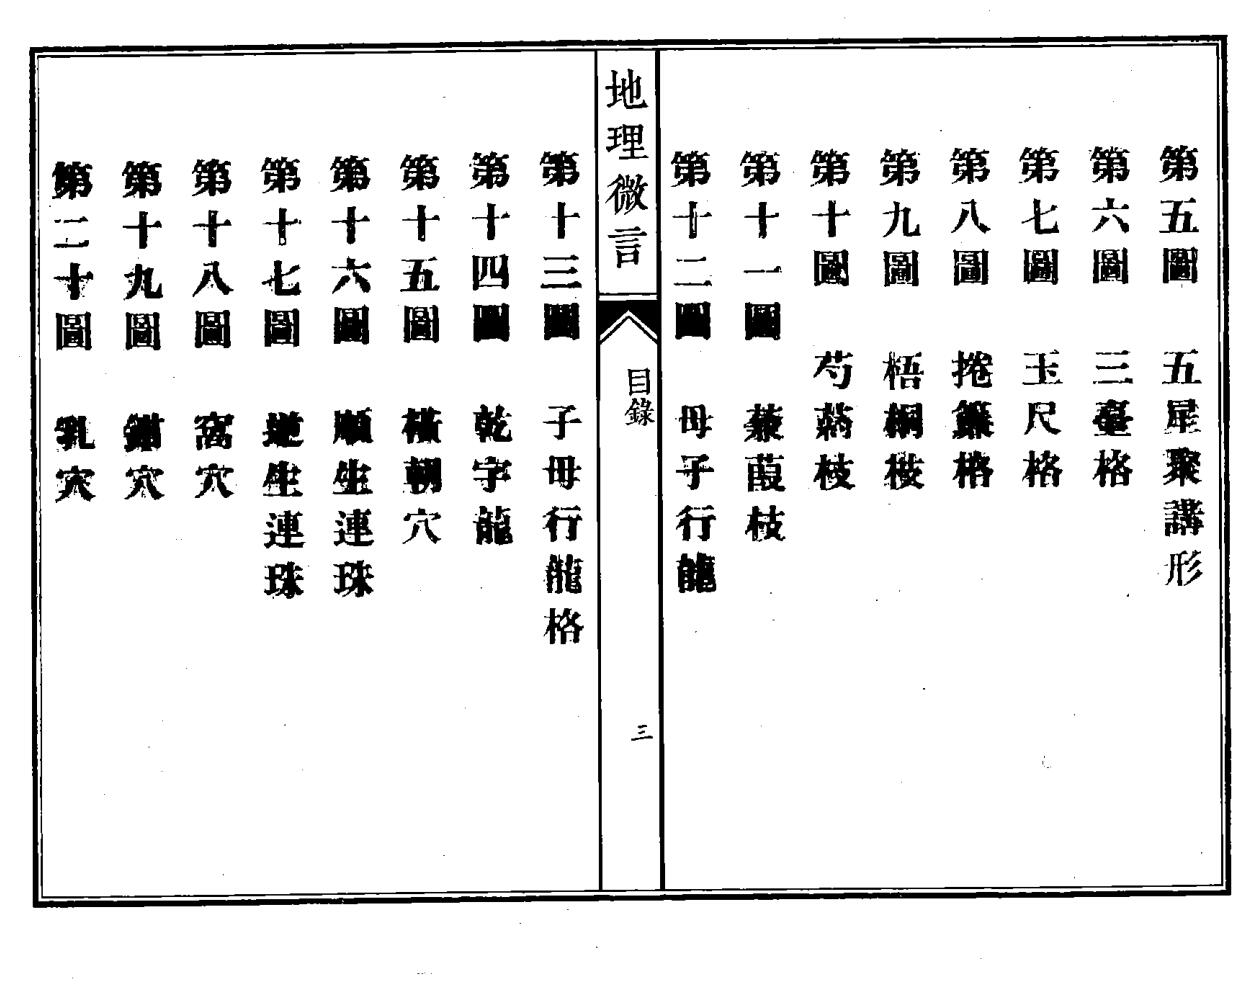 第五圖　五星聚講形
第六圖　三臺格
第七圖　玉尺格
第八圖　捲簾格
第九圖　梧桐枝
第十圖　芍藥枝
第十一圖　蒹葭枝
第十二圖　母子行龍
地理微言　目錄　三
第十三圖　子母行龍格
第十四圖　乾字龍
第十五圖　橫朝穴
第十六圖　順生連珠
第十七圖　逆生連珠
第十八圖　窩穴
第十九圖　鉗穴
第二十圖　乳穴